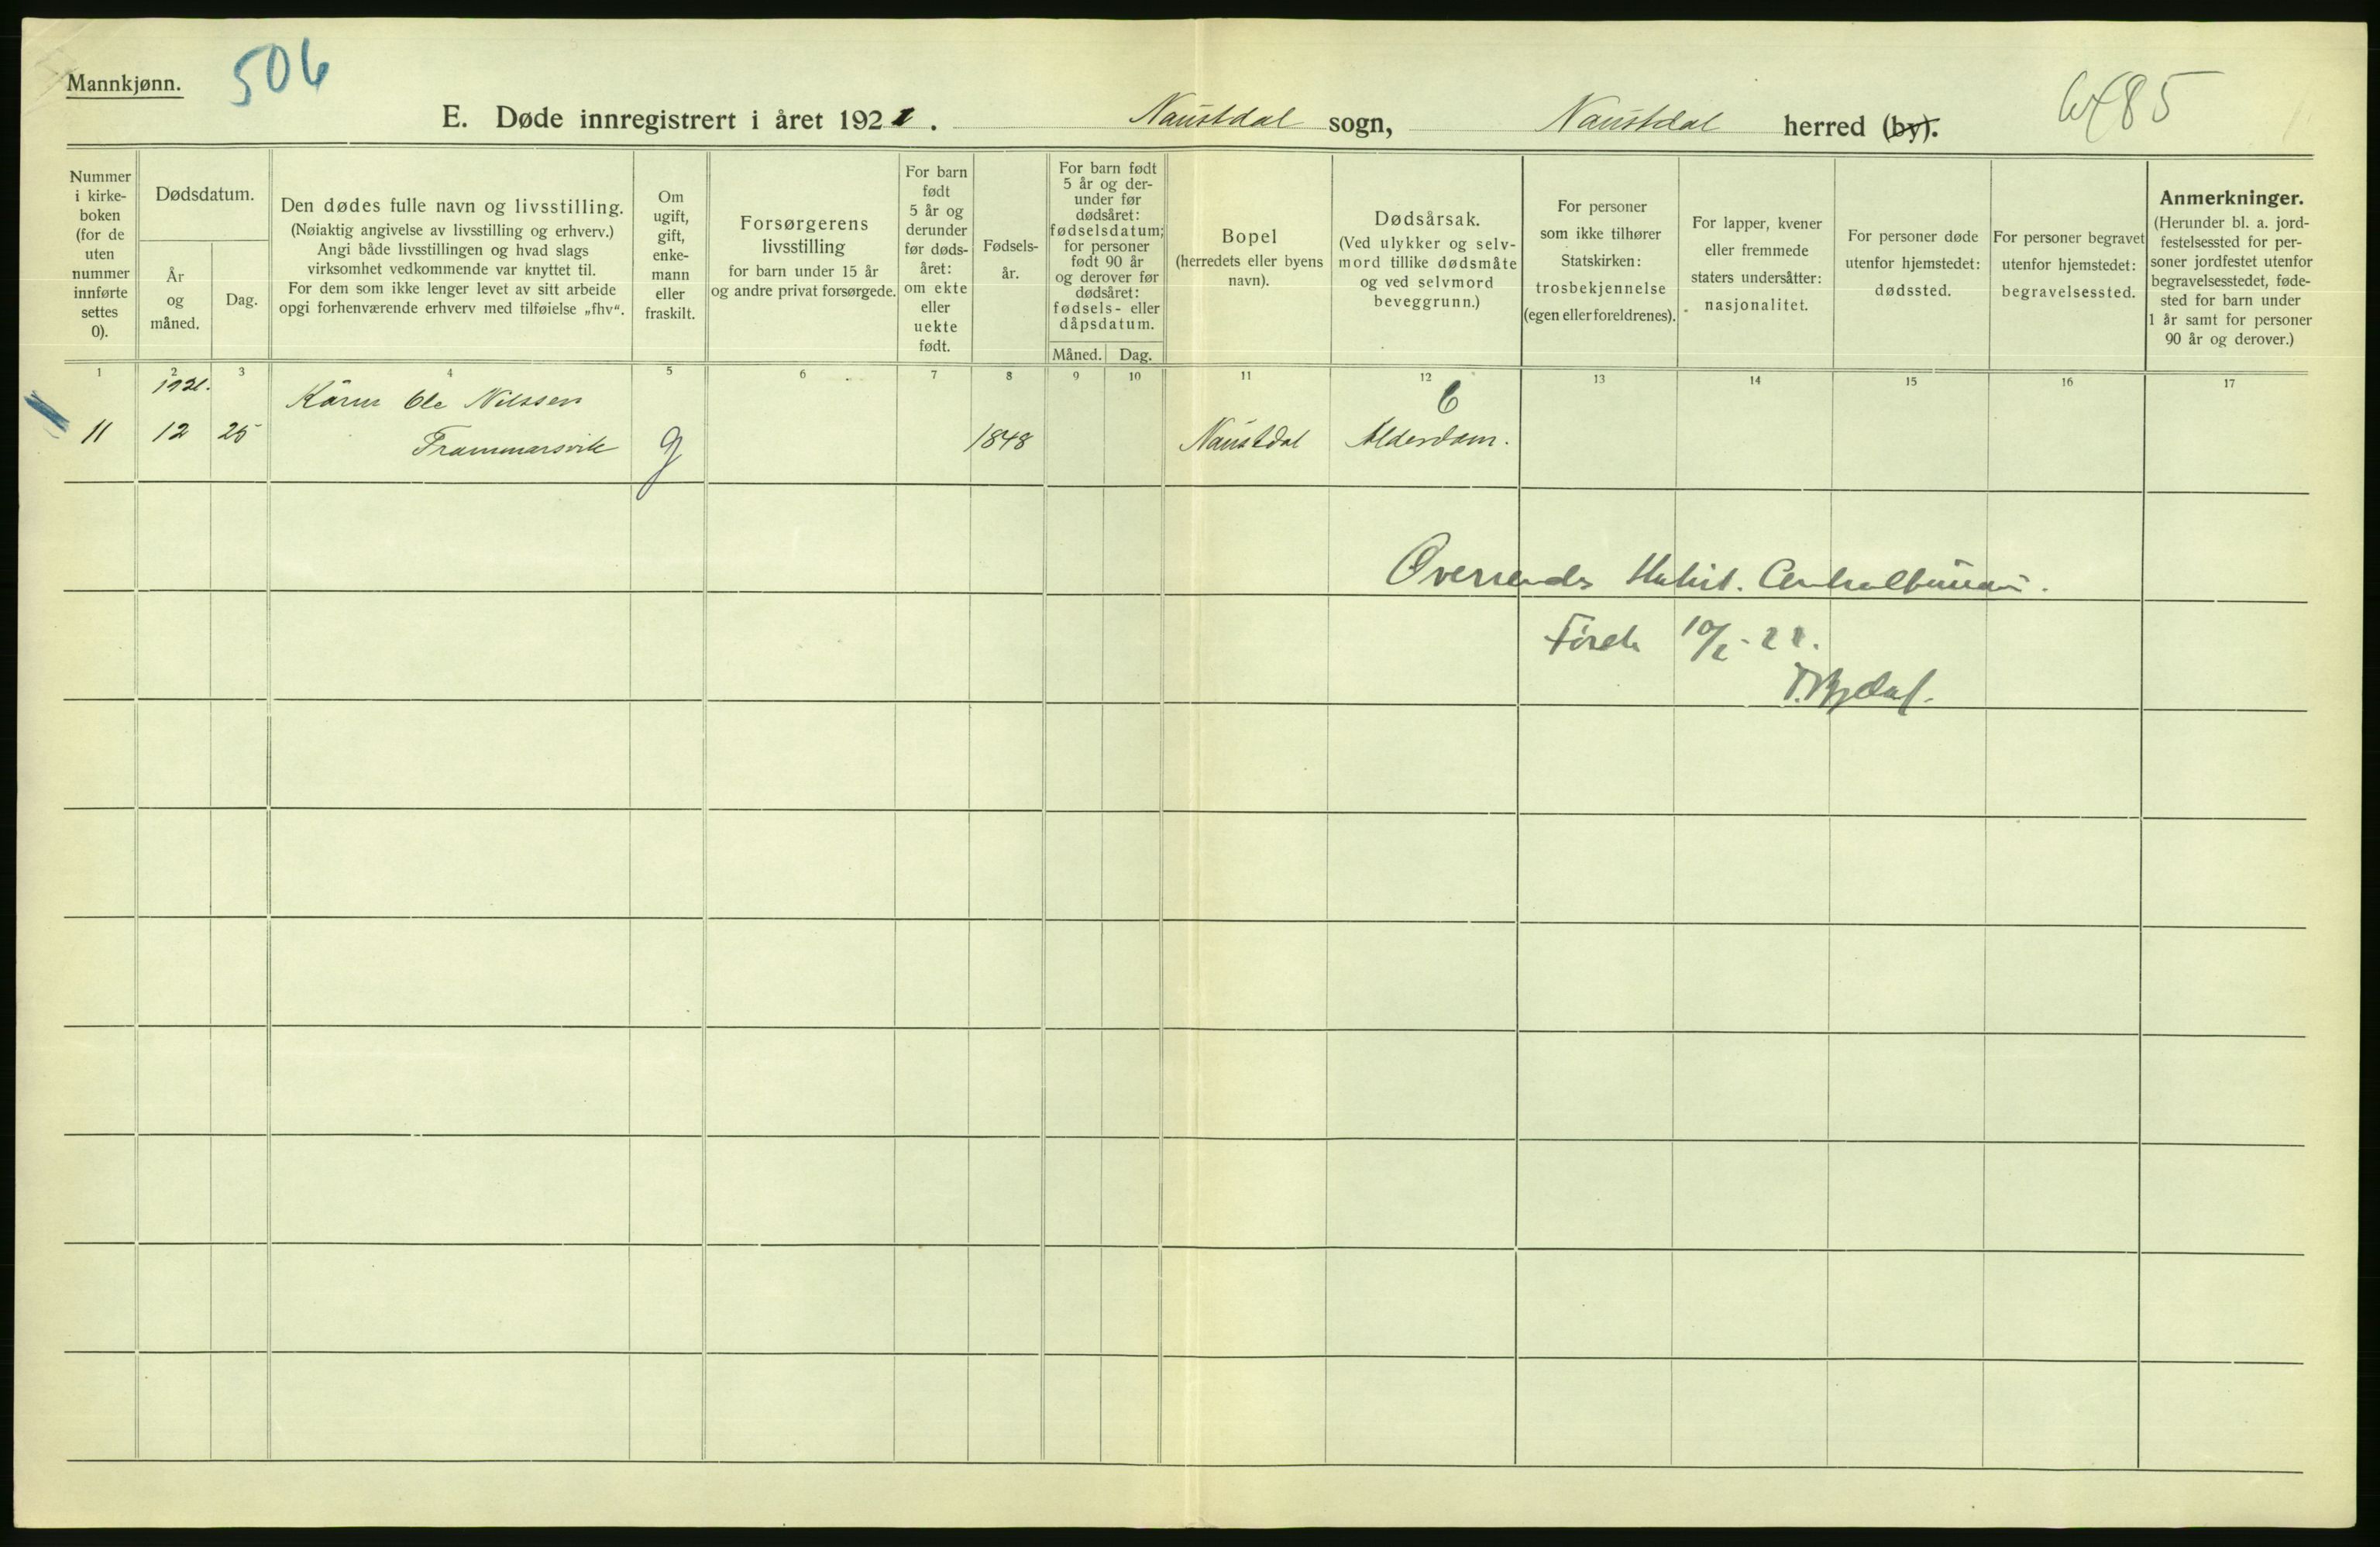 Mannkjønn.
506
E. Døde innregistrert i året 1921. Naustdal sogn, Naustdal herred (by).
85
Nummer
i kirke-
boken
(for de
uten
nummer
innførte
settes
0).
Dødsdatum.
År
og
måned.
Dag.
Den dødes fulle navn og livsstilling.
(Nøiaktig angivelse av livsstilling og erhverv.)
Angi både livsstillingen og hvad slags
virksomhet vedkommende var knyttet til.
For dem som ikke lenger levet av sitt arbeide
opgi forhenværende erhverv med tilføielse „fhv“.
Om
ugift,
gift,
enke-
mann
eller
fraskilt.
Forsørgerens
livsstilling
for barn under 15 år
og andre privat forsørgede.
For barn
født
5 år og
derunder
før døds-
året:
om ekte
eller
uekte
født.
Fødsels-
år.
For barn født
5 år og der-
under før
dødsåret:
fødselsdatum;
for personer
født 90 år
og derover før
dødsåret:
fødsels- eller
dåpsdatum.
Måned. Dag.
Bopel
(herredets eller byens
navn).
Dødsårsak.
(Ved ulykker og selv-
mord tillike dødsmåte
og ved selvmord
beveggrunn.)
For personer
som ikke tilhører
Statskirken:
trosbekjennelse
(egen eller foreldrenes).
For lapper, kvener
eller fremmede
staters undersåtter:
nasjonalitet.
For personer døde
utenfor hjemstedet:
dødssted.
For personer begravet
utenfor hjemstedet:
begravelsessted.
Anmerkninger.
(Herunder bl. a. jord-
festelsessted for per-
soner jordfestet utenfor
begravelsesstedet, føde-
sted for barn under
1 år samt for personer
90 år og derover.)
1 2 3 4 5 6 7 8 9 10 11 12 13 14 15 16 17
1921. Ole Nilssen 6
11 12 25 Frammarsvik g 1848 Naustdal Alderdom.
Oversendes Statist. Centralbureau.
Førde 10/2-22.